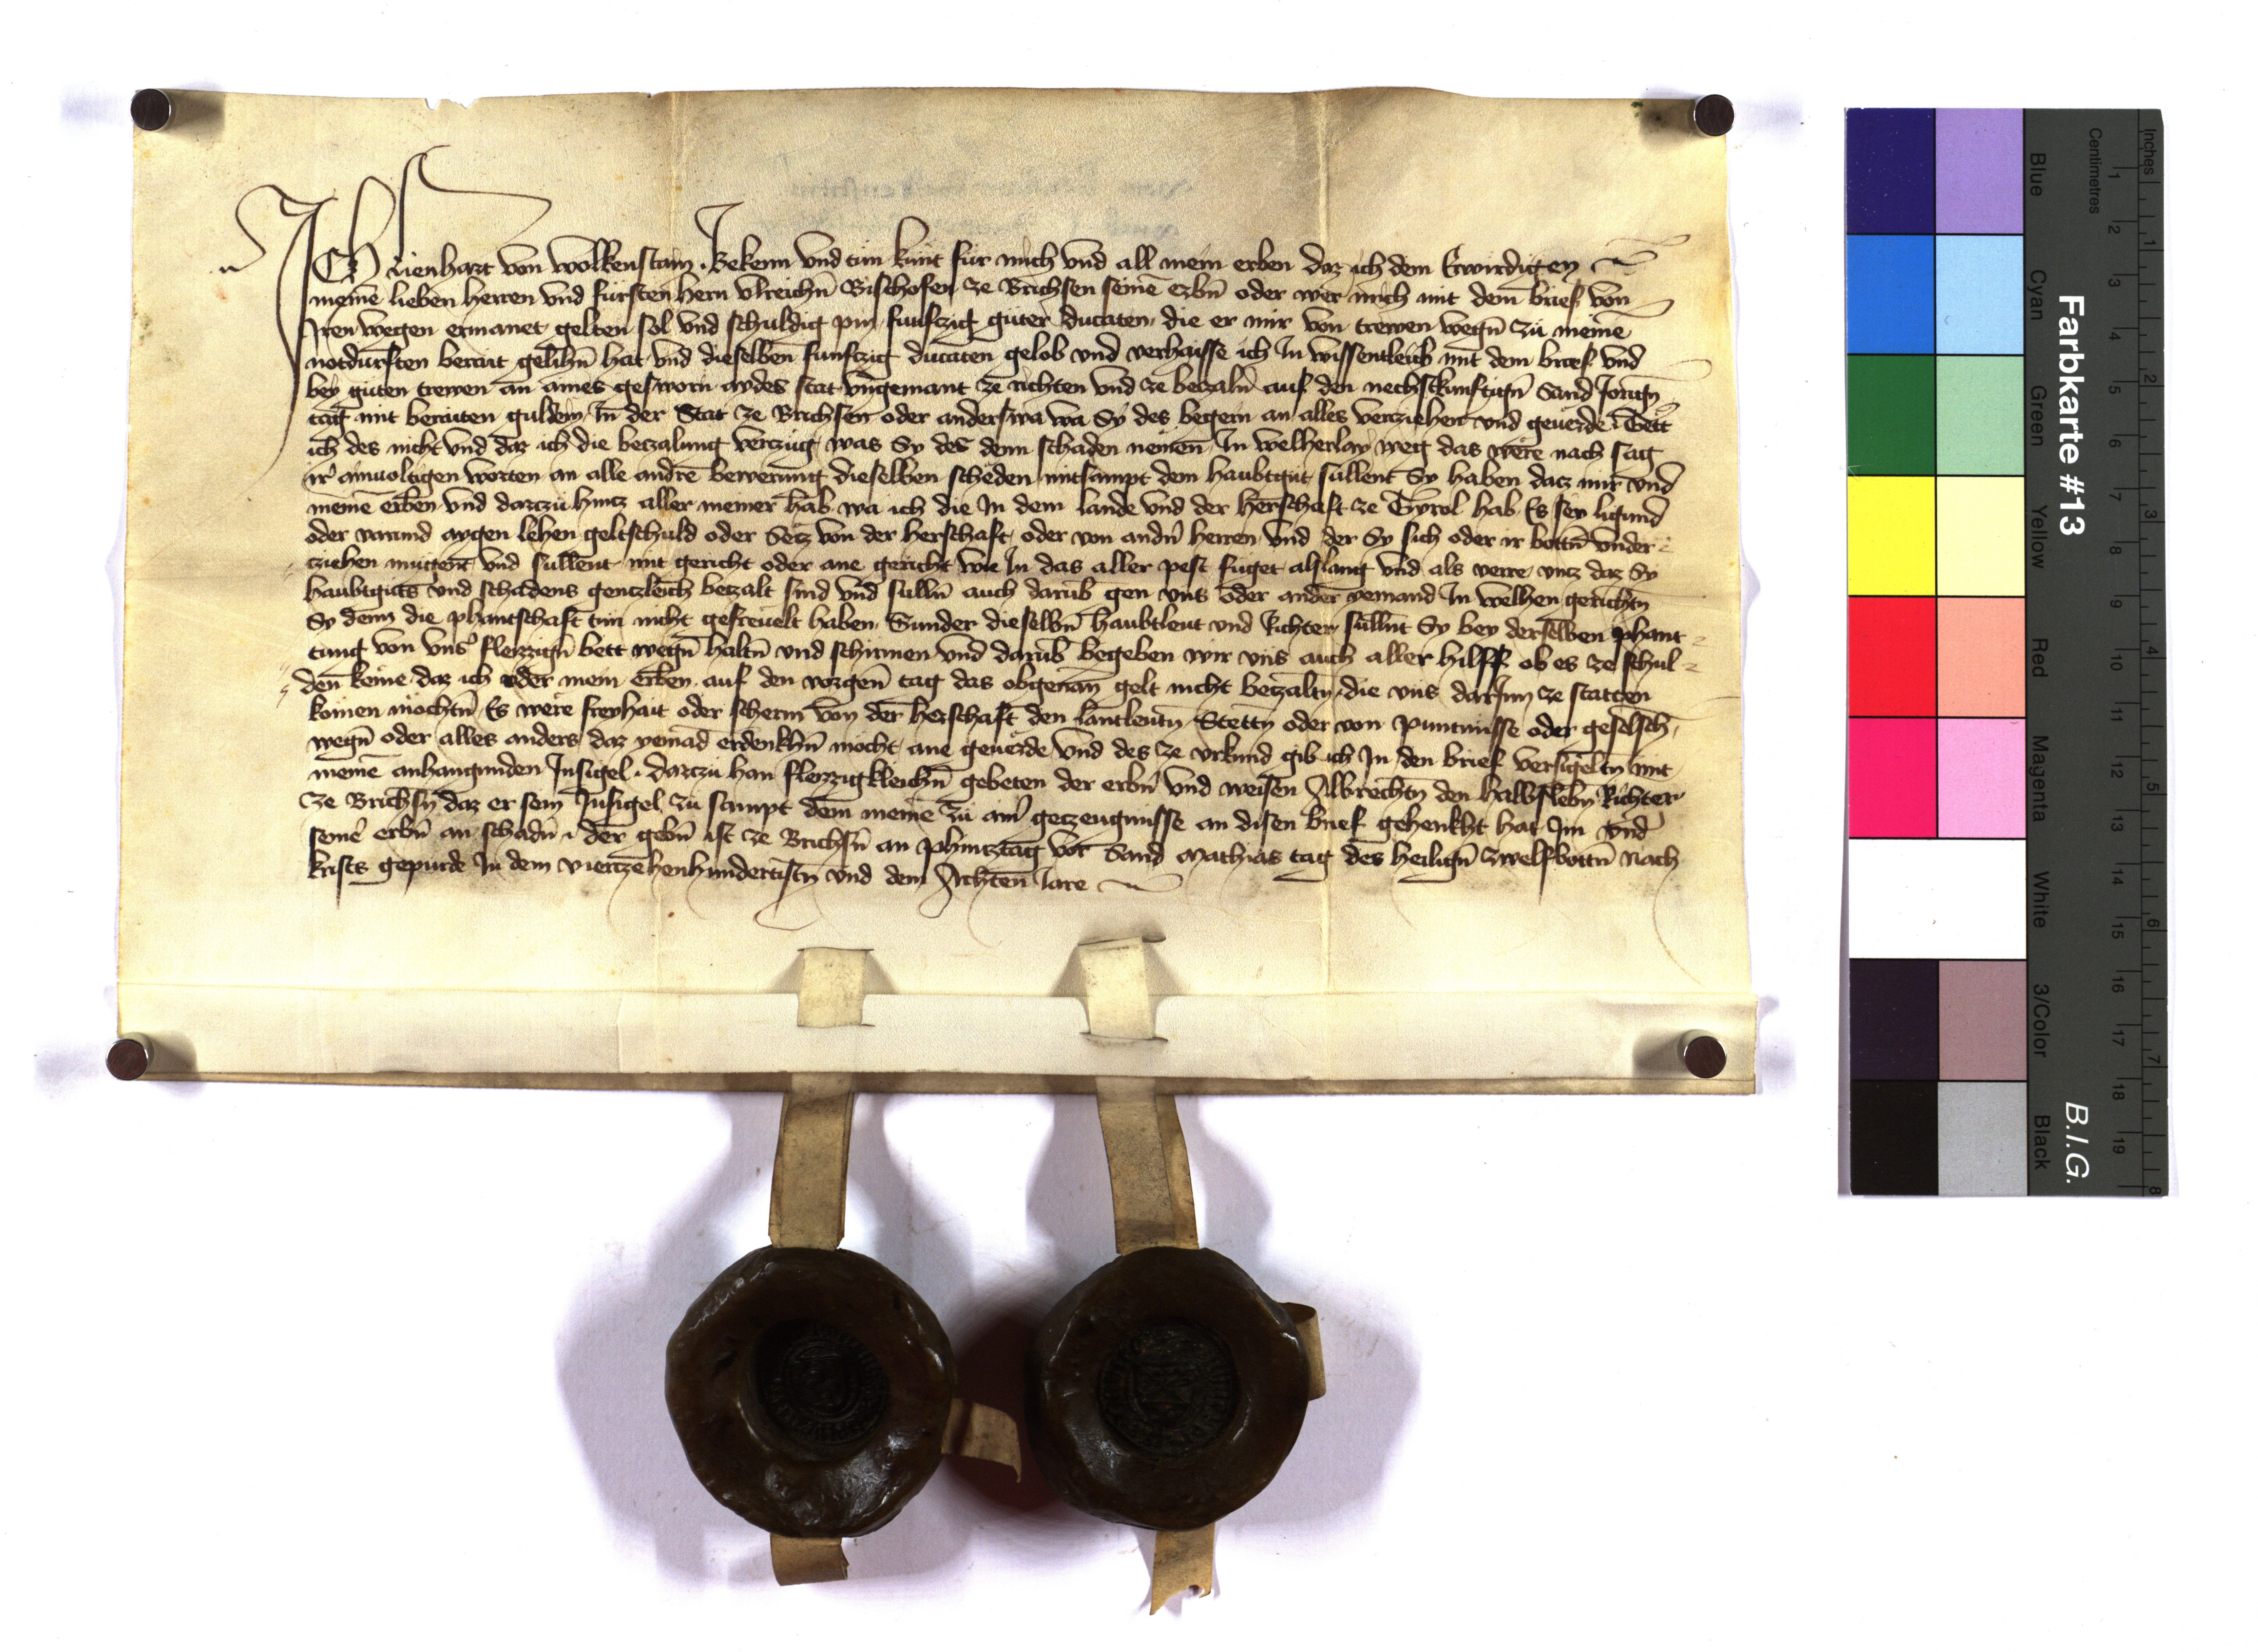 ICh Lienhart von wolkenstain . Bekenn vnd tun kunt fur mich vnd all mein erben daz ich dem Erwirdigen
meinē lieben herren vnd fursten hern vlreichn̄ Bischofen ze Brichsen seinē erbn̄ oder wer mich mit dem brief von
Iren wegen ermanet gelten sol vnd schuldig pin funfczig guter ducaten die er mir von trewen wegn̄ zu meinē
notdurften berait gelihn̄ hat vnd dieselben funftzig ducaten gelob vnd verhaisse ich In wissentleich mit dem brief vnd
bey guten trewen an aines gesworn aydes stat vngemant ze richten vnd ze betzaln̄ auf den nechstkunftign̄ Sand Jorign̄
tag mit beraiten guldein In der Stat ze Brichsen oder anderswa wa Sy des begern an alles verziehen vnd geuerde . Tett
ich des nicht vnd daz ich die betzalung vertzug was Sy des denn schaden nemen In welherlay weg das were nach sag
ir ainuoltigen worten an alle andre bewerung dieselben scheden mitsampt dem haubtgut sullent Sy haben datz mir vnd
meinē erben vnd dartzu hintz aller meiner hab wa ich die In dem lande vnd der herschaft ze Tyrol hab Es sey ligund
oder varund aygen lehen geltschuld oder Setz von der herschaft oder von andn̄ herren vnd der Sy sich oder ir bottn̄ vnder
ziehen mugent vnd sullent mit gericht oder ane gericht wie In das aller pest fuget alslang vnd als verre vntz daz Sy
haubtguts vnd schadens gentzleich betzalt sind vnd sulln̄ auch darūb gen vns oder ander yemand In welhen gerichtn̄
Sy denn die phantschaft tun nicht gefreuelt haben Sunder dieselbn̄ haubtleut vnd Richter sullnt Sy bey derselben phant
tung von vnsˀ fleizzign̄ bett wegn̄ haltn̄ vnd schirmen vnd darūb begeben wir vns auch aller hilff ob es ze schul
den keme daz ich oder mein erben auf den vorgen̄ tag das obgenan̄ gelt nicht betzaltn̄ die vns darInn ze statten
komen mochtn̄ Es were freyhait oder scherm von der herschaft den lantleutn̄ Stettn̄ oder von puntnusse oder geselsch
wegn̄ oder alles anders daz yemād erdenkhn̄ mocht ane geuerde vnd des ze vrkund gib ich In den brief versigeltn̄ mit
meinē anhangunden Insigel . dartzu han fleizzigkleichn̄ gebeten der erbn̄ vnd weisen Albrechtn̄ den halbslebn̄ Richter
ze Brichsn̄ daz er sein Insigel zu sampt dem meinē zu aim̄ getzeugnusse an disen brief gehenkht hat Im vnd
seinē erbn̄ an schadn̄ . der gebn̄ ist ze Brichsn̄ an phintztag vor Sand Mathias tag des heilign̄ zwelfbottn̄ nach
krists gepurde In dem viertzehenhundertistn̄ vnd dem Achten Iare
Farbkarte #13
B.I.G.
Blue Cyan Green Yellow Red Magenta White 3/Color Black
Centimetres 1 2 3 4 5 6 7 8 9 10 11 12 13 14 15 16 17 18 19
Inches 1 2 3 4 5 6 7 8